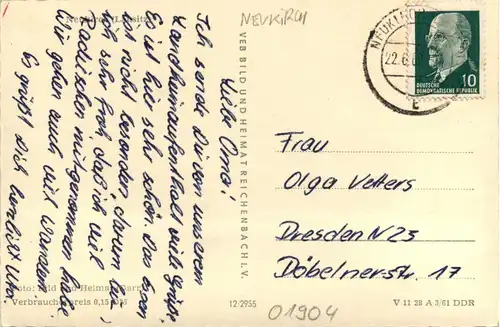 Neukirch (Lausitz)
Liebe Oma!
Ich sende Dir von unserem
Landheimaufenthalt viele Grüße.
Es ist hier sehr schön. Das Essen
ist nicht besonders, darum bin
ich sehr froh, daß ich viel
Radieschen mitgenommen habe.
Wir gehen auch viel wandern.
Es grüßt Dich herzlich Uta.
Foto: Bild und Heimat
Verbraucherpreis 0,15 DM
NEUKIRCH
VEB BILD UND HEIMAT REICHENBACH I. V.
12/2955
NEUKIRCH
22.6.
10
DEUTSCHE
DEMOKRATISCHE REPUBLIK
Frau
Olga Vetters
Dresden N 23
Döbelnerstr. 17
01904
V 11 28 A 3/61 DDR